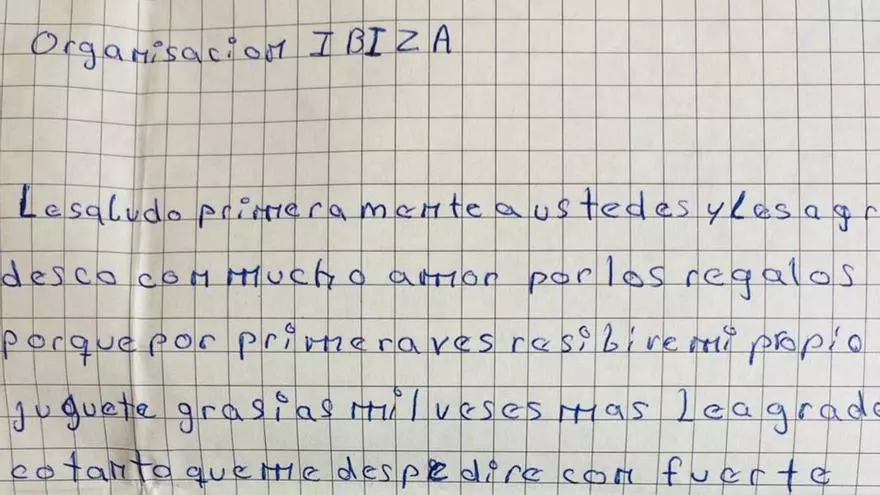 Organisacion IBIZA
Lesaludo primeramente a ustedes y les agr
desco con mucho amor por los regalos
porque por primera ves resibire mi propio
juguete grasias mil veses mas le agrade
co tanto que me despedire con fuerte